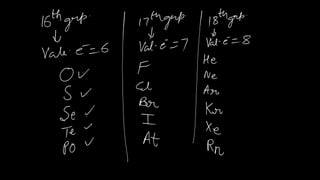 16th grp.
↓
Vale. e⁻ = 6
O ✓
S ✓
Se ✓
Te ✓
Po ✓
17th grp
↓
Val. e⁻ = 7
F
Cl
Br
I
At
18th grp.
↓
Val. e⁻ = 8
He
Ne
Ar
Kr
Xe
Rn